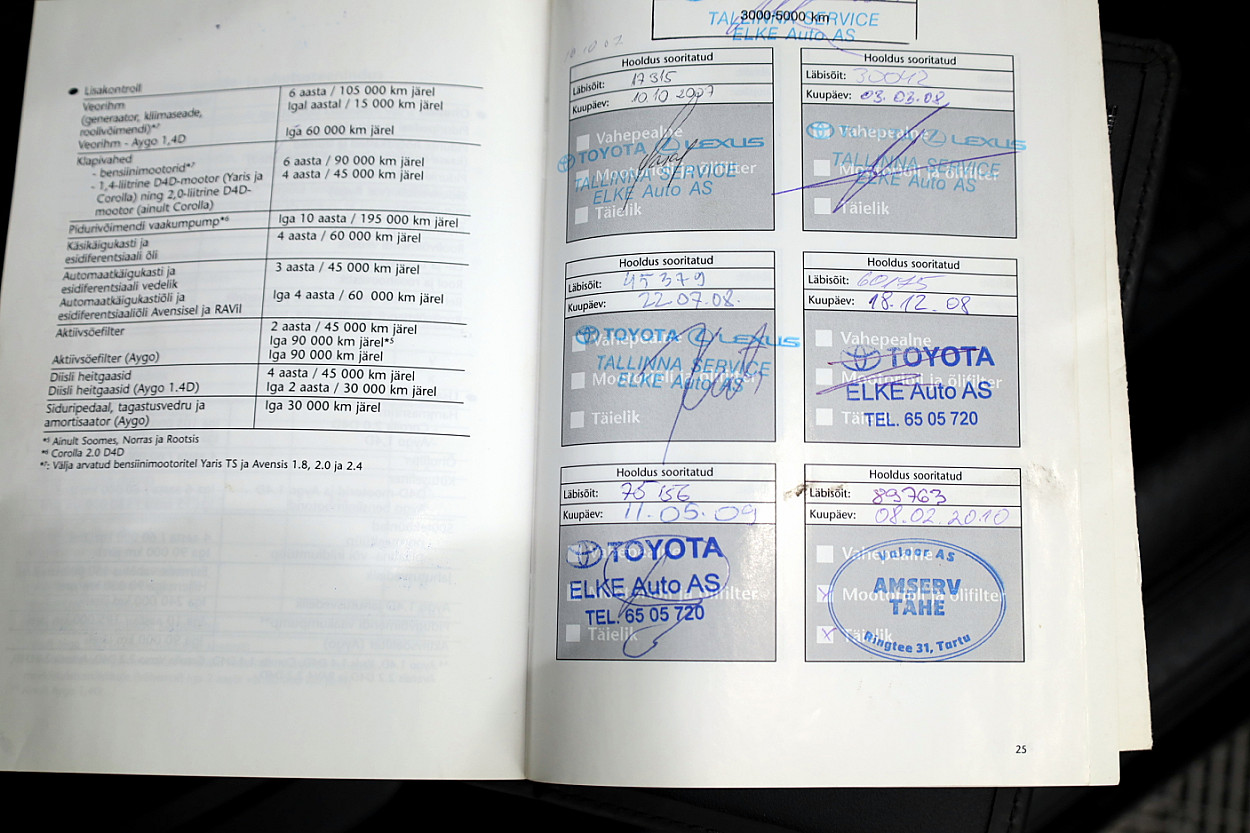 Lisakontroll
Veorihm
(generaator, kliimaseade,
roolivõimendi)*⁷
Veorihm - Aygo 1,4D
6 aasta / 105 000 km järel
Igal aastal / 15 000 km järel
Iga 60 000 km järel
Klapivahed
- bensiinimootorid*⁷
- 1,4-liitrine D4D-mootor (Yaris ja
Corolla) ning 2,0-liitrine D4D-
mootor (ainult Corolla)
6 aasta / 90 000 km järel
4 aasta / 45 000 km järel
Pidurivõimendi vaakumpump*⁶
Iga 10 aasta / 195 000 km järel
Käsikäigukasti ja
esidiferentsiaali õli
4 aasta / 60 000 km järel
Automaatkäigukasti ja
esidiferentsiaali vedelik
Automaatkäigukastiõli ja
esidiferentsiaaliõli Avensisel ja RAVil
3 aasta / 45 000 km järel
Iga 4 aasta / 60 000 km järel
Aktiivsöefilter
Aktiivsöefilter (Aygo)
2 aasta / 45 000 km järel
Iga 90 000 km järel*⁵
Iga 90 000 km järel
Diisli heitgaasid
Diisli heitgaasid (Aygo 1.4D)
4 aasta / 45 000 km järel
Iga 2 aasta / 30 000 km järel
Siduripedaal, tagastusvedru ja
amortisaator (Aygo)
Iga 30 000 km järel
*⁵ Ainult Soomes, Norras ja Rootsis
*⁶ Corolla 2.0 D4D
*⁷: Välja arvatud bensiinimootoritel Yaris TS ja Avensis 1.8, 2.0 ja 2.4
3000-5000 km
TALLINNA SERVICE
ELKE Auto AS
Hooldus sooritatud
Läbisõit: 17315
Kuupäev: 10.10 2007
Vahepealne
TOYOTA LEXUS
Mootoriõli ja õlifilter
TALLINNA SERVICE
ELKE Auto AS
Täielik
Hooldus sooritatud
Läbisõit: 30042
Kuupäev: 03.03.08
Vahepealne
LEXUS
TALLINNA SERVICE
Mootoriõli ja õlifilter
ELKE Auto AS
Täielik
Hooldus sooritatud
Läbisõit: 45379
Kuupäev: 22.07.08.
Vahepealne
TOYOTA LEXUS
TALLINNA SERVICE
Mootoriõli ja õlifilter
ELKE Auto AS
Täielik
Hooldus sooritatud
Läbisõit: 60175
Kuupäev: 18.12.08
Vahepealne
TOYOTA
Mootoriõli ja õlifilter
ELKE Auto AS
Täielik
TEL. 65 05 720
Hooldus sooritatud
Läbisõit: 75 156
Kuupäev: 11.05.09
Vahepealne
TOYOTA
ELKE Auto AS
Mootoriõli ja õlifilter
TEL. 65 05 720
Täielik
Hooldus sooritatud
Läbisõit: 89763
Kuupäev: 08.02.2010
Vahepealne
AMSERV
Mootoriõli ja õlifilter
TÄHE
Täielik
Ringtee 31, Tartu
25